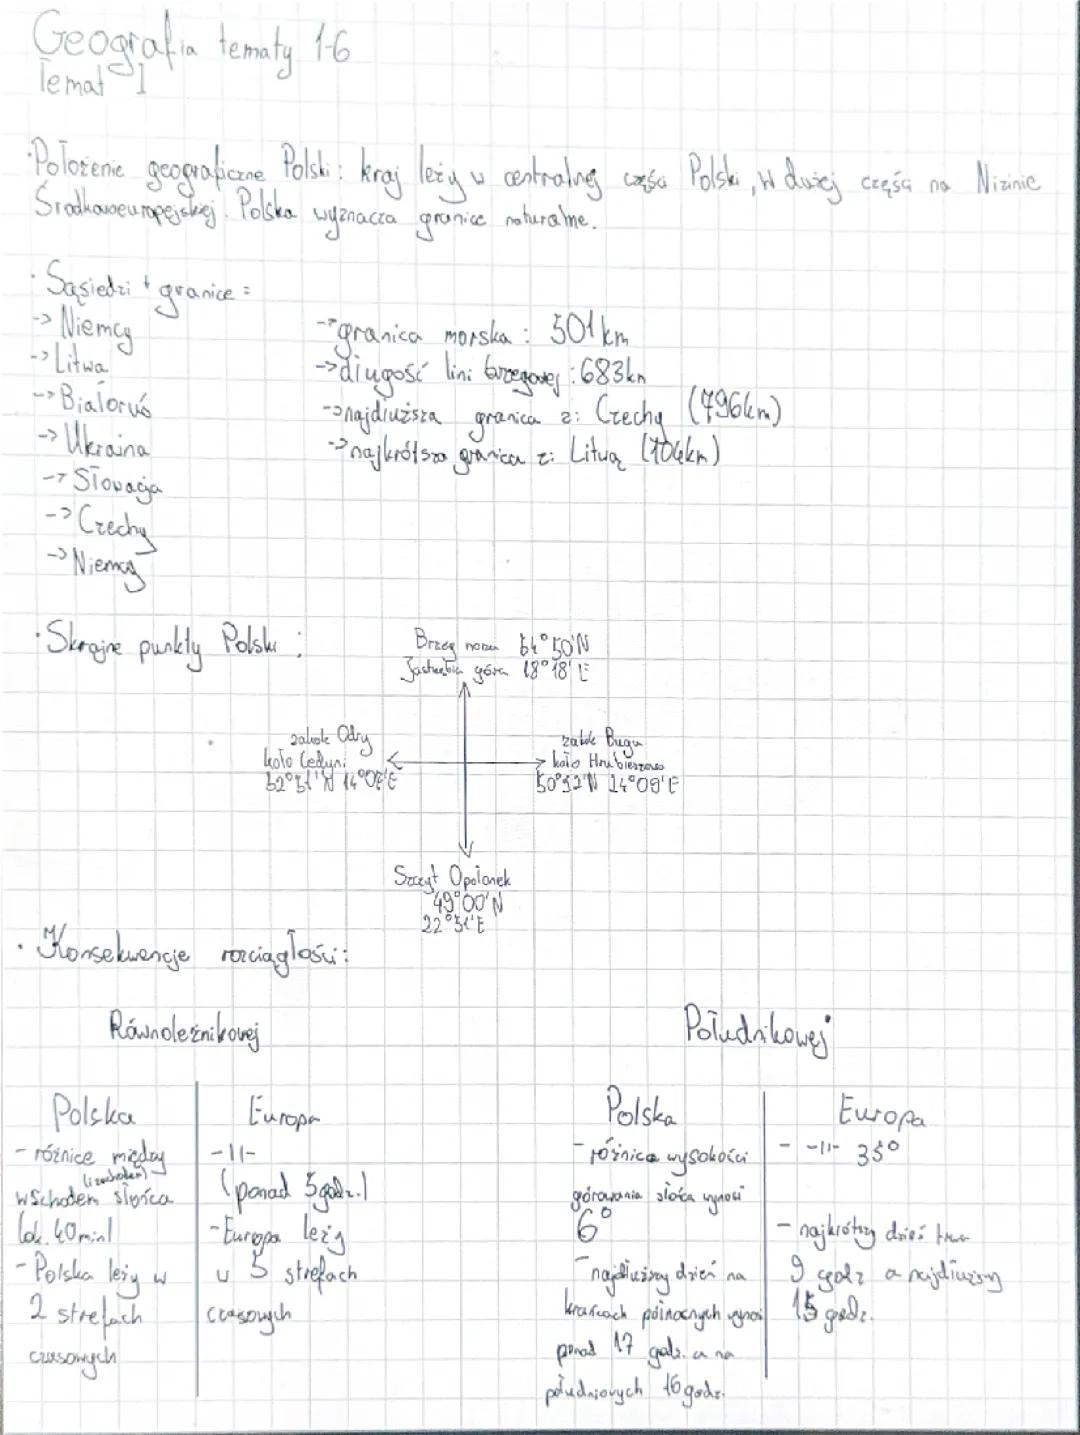 Geografia tematy 1-6
Temat 1
·Położenie geograficzne Polski: kraj leży w centralnej części Polski, w dużej części na Nizinie
Środkowoeuropejskiej. Polska wyznacza granice naturalne.
· Sąsiedzi + granice =
-> Niemcy
-> Litwa
-> Białoruś
-> Ukraina
-> Słowacja
-> Czechy
-> Niemcy
-> granica morska: 501km
-> długość lini brzegowej: 683km
-> najdłuższa granica z: Czechy (796km)
-> najkrótsza granica z: Litwą (104km)
· Skrajne punkty Polski:
Brzeg morza 54°50'N
Jastrzębia góra 18°18'E
zakole Odry
koło Cedyni
52°51'N 14°07'E
zakole Bugu
koło Hrubieszowa
50°52'N 24°09'E
Szczyt Opołonek
49°00'N
22°51'E
· Konsekwencje rozciągłości:
Równoleżnikowej
Polska
- różnice między
(i zachodem)
wschodem słońca
(ok. 40min)
- Polska leży w
2 strefach
czasowych
Europa
-||-
(ponad 5godz.)
- Europa leży
w 5 strefach
czasowych
Południkowej
Polska
- różnica wysokości
górowania słońca wynosi
6°
- najdłuższy dzień na
krańcach północnych wynosi
ponad 17 godz. a na
południowych 16 godz.
Europa
- -||- 35°
- najkrótszy dzień trwa
9 godz a najdłuższy
15 godz.